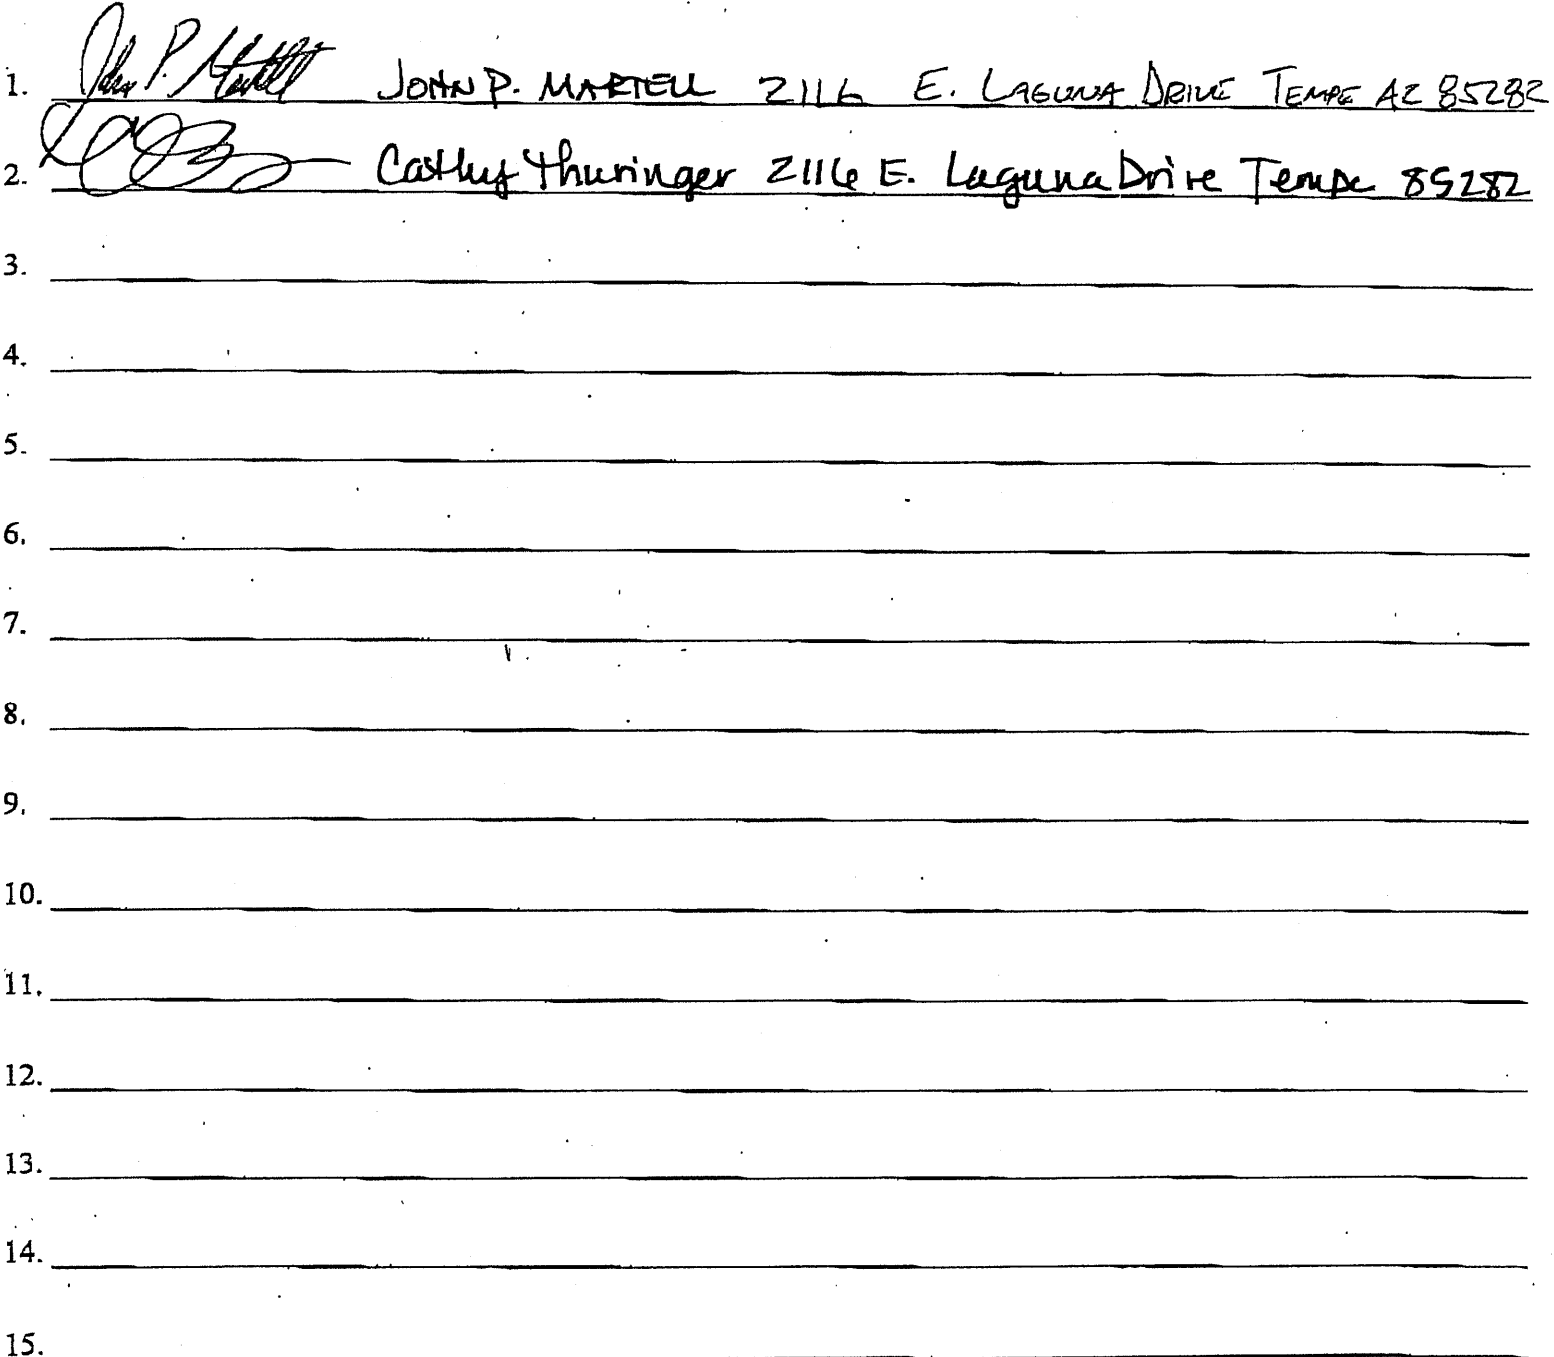 1. John P. Martell JOHN P. MARTELL 2116 E. LAGUNA DRIVE TEMPE AZ 85282
2. Cathy Thuringer 2116 E. Laguna Drive Tempe 85282
3.
4.
5.
6.
7.
8.
9.
10.
11.
12.
13.
14.
15.